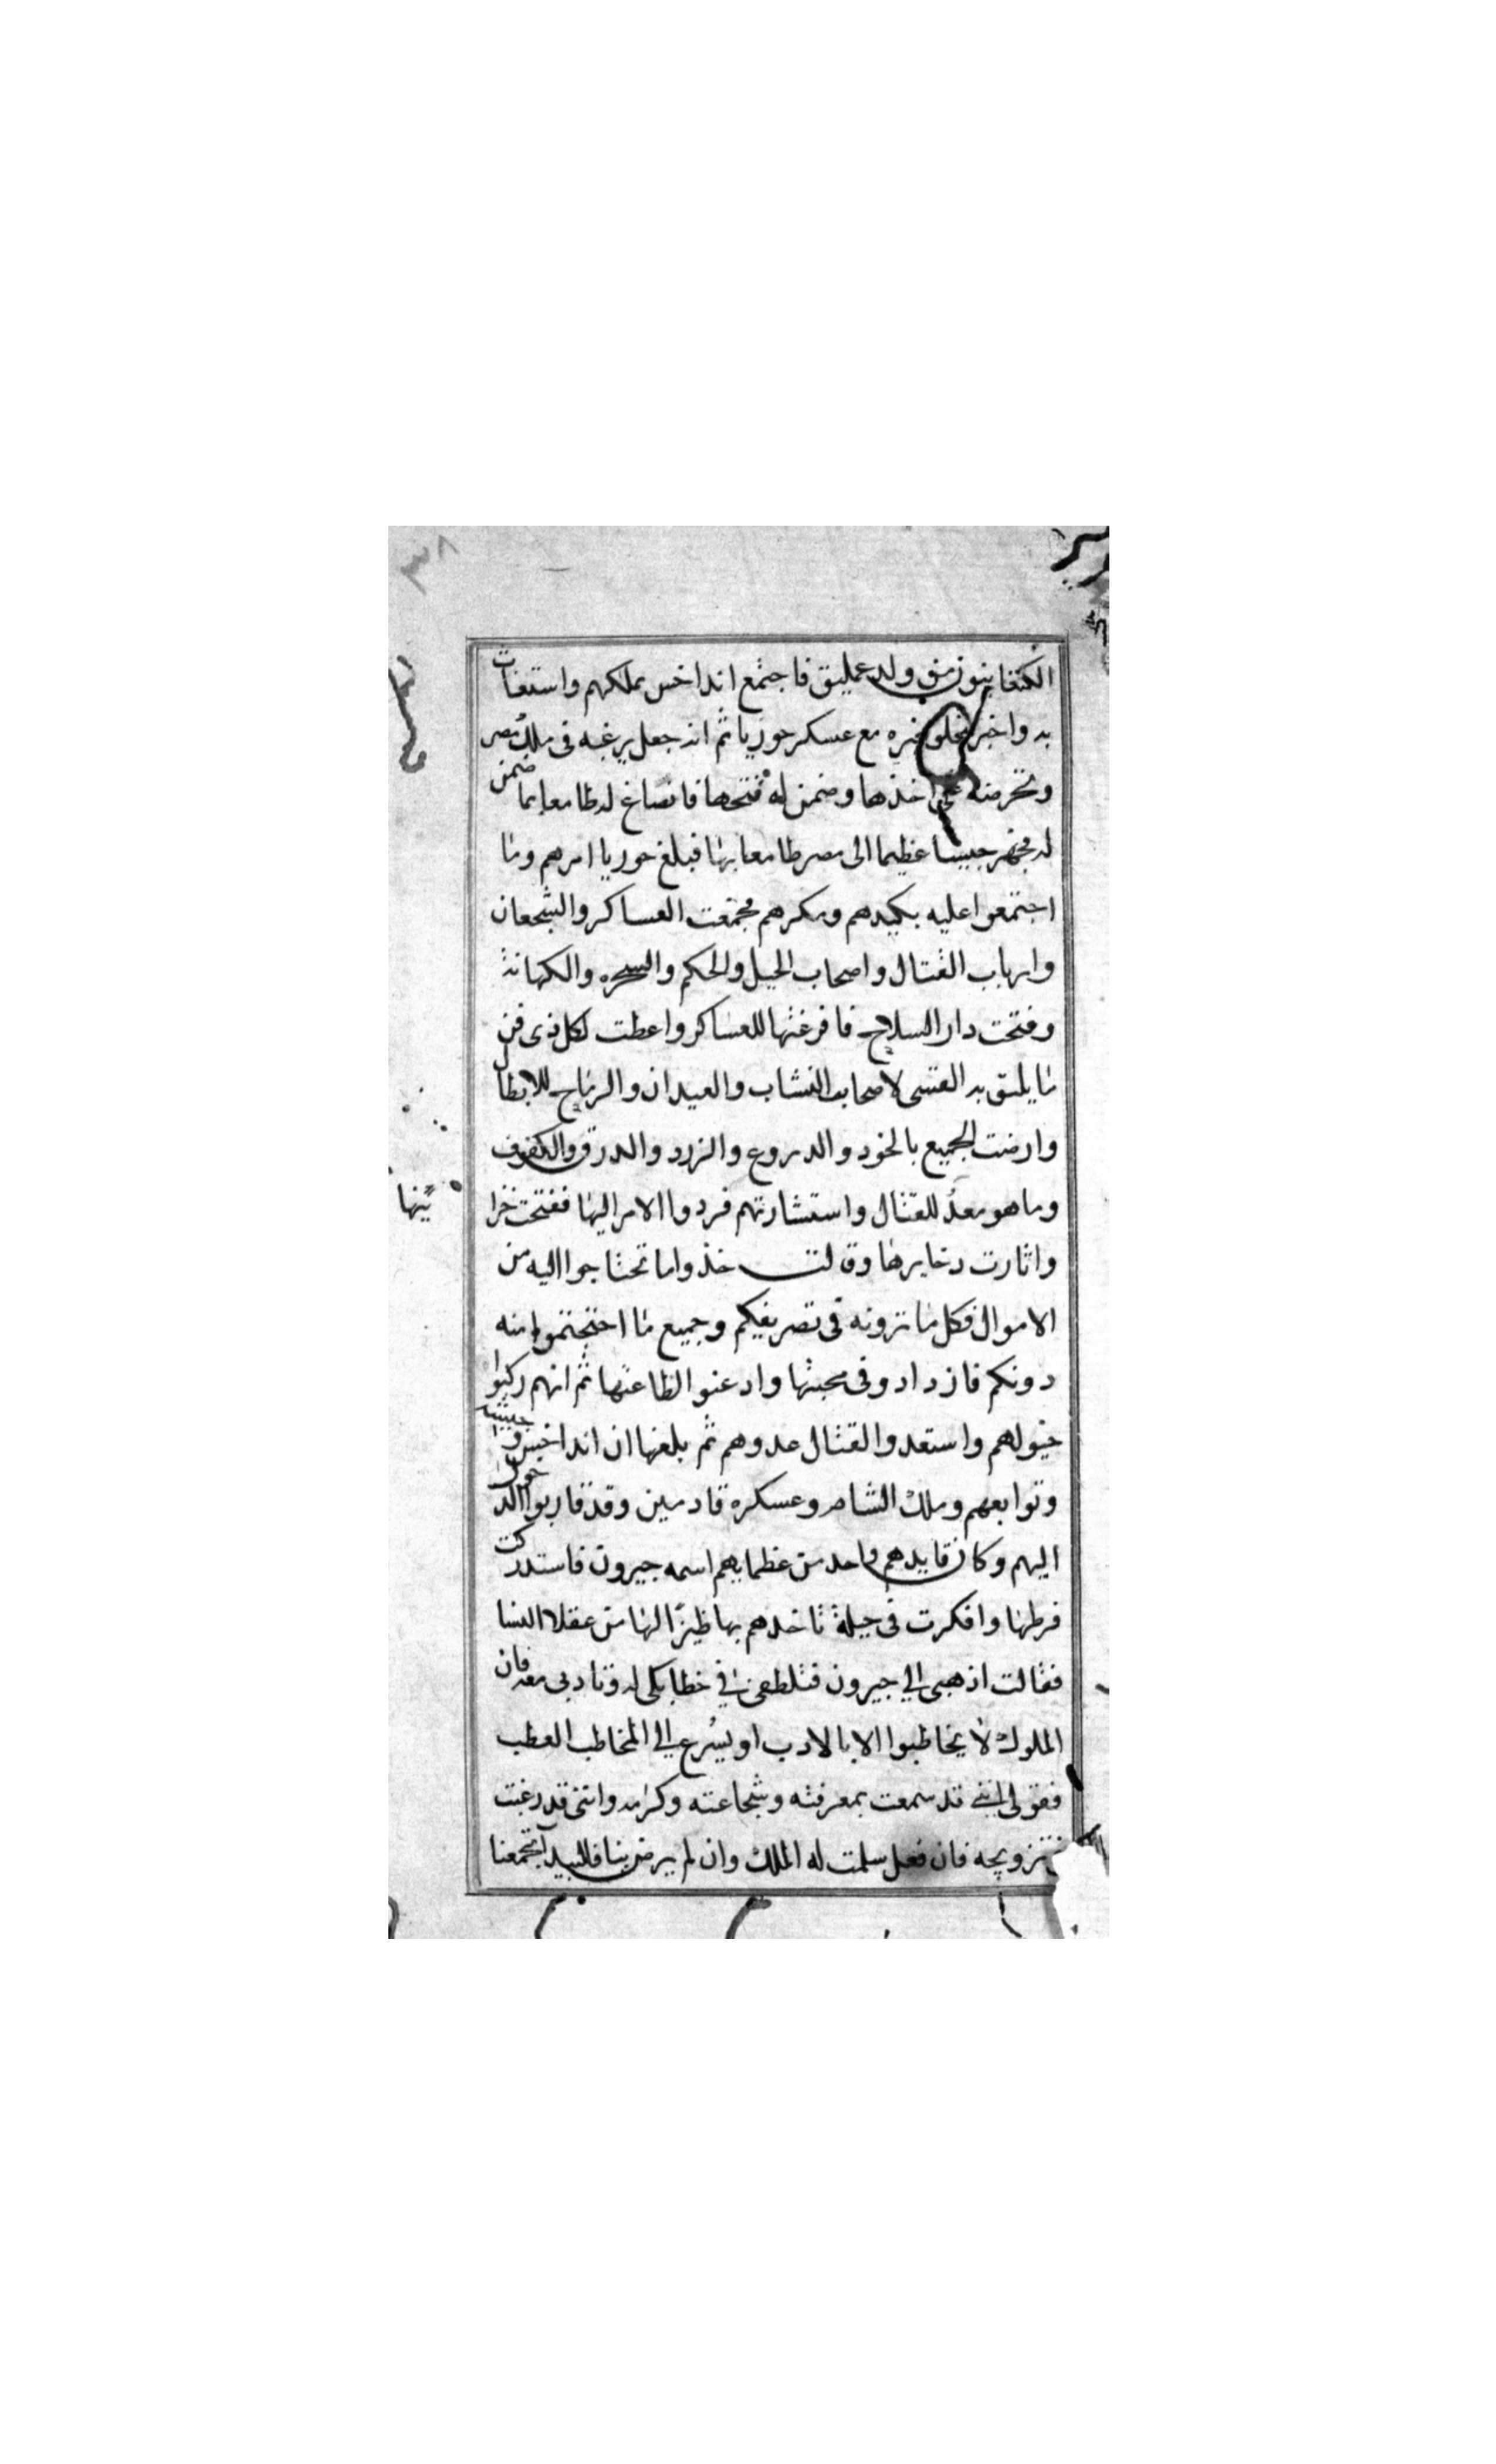 ٣٨
الكنعانيون من ولد عمليق فاجتمع انداخس بملكهم واستغاث
به واخبره مع عسكر حوريا ثم انه جعل يرغبه فى ملك مصر
وتحرضه على اخذها وضمن له فتحها فانصاغ له طامعا بما ضمن
له فجهز جيشا عظيما الى مصر طامعا بها فبلغ حوريا امرهم وما
اجتمعوا عليه بكيدهم ومكرهم فجمعت العساكر والشجعان
وارباب القتال واصحاب الحيل والحكم والسحره والكهانة
وفتحت دار السلاح فافرغتها للعساكر واعطت لكل ذى فن
ما يليق به القسى لاصحاب النشاب والعيدان والرماح للابطال
وارضت الجميع بالخود والدروع والزرد والدرق والكفوف
وما هو معدُ للقتال واستشارتهم فردوا الامر اليها ففتحت خزا
ينها
واثارت دخايرها وقالت خذوا ما تحتاجوا اليه من
الاموال فكل ما ترونه فى تصريفكم وجميع ما احتجتموا منه
دونكم فازدادو فى محبتها وادعنوا لطاعتها ثم انهم ركبوا
خيولهم واستعدوا لقتال عدوهم ثم بلغها ان انداخس وجيشه
وتوابعهم وملك الشام وعسكره قادمين وقد قاربوا الدخول
اليهم وكان قايدهم واحد من عظمايهم اسمه جيرون فاستدركت
فرطها وافكرت فى حيلة تاخدهم بها ظيرًا لها من عقلا النسا
فقالت اذهبى الي جيرون فتلطفى في خطابكى له وتادبى معه فان
الملوك لا يخاطبوا الا بالادب او يسُرع الي المخاطب العطب
فقولى اننى قد سمعت بمعرفته وشجاعته وكرامه واننى قد رغبت
تزويجه فان فعل سلمت له الملك وان لم يرض بنا فالبيدا تجمعنا